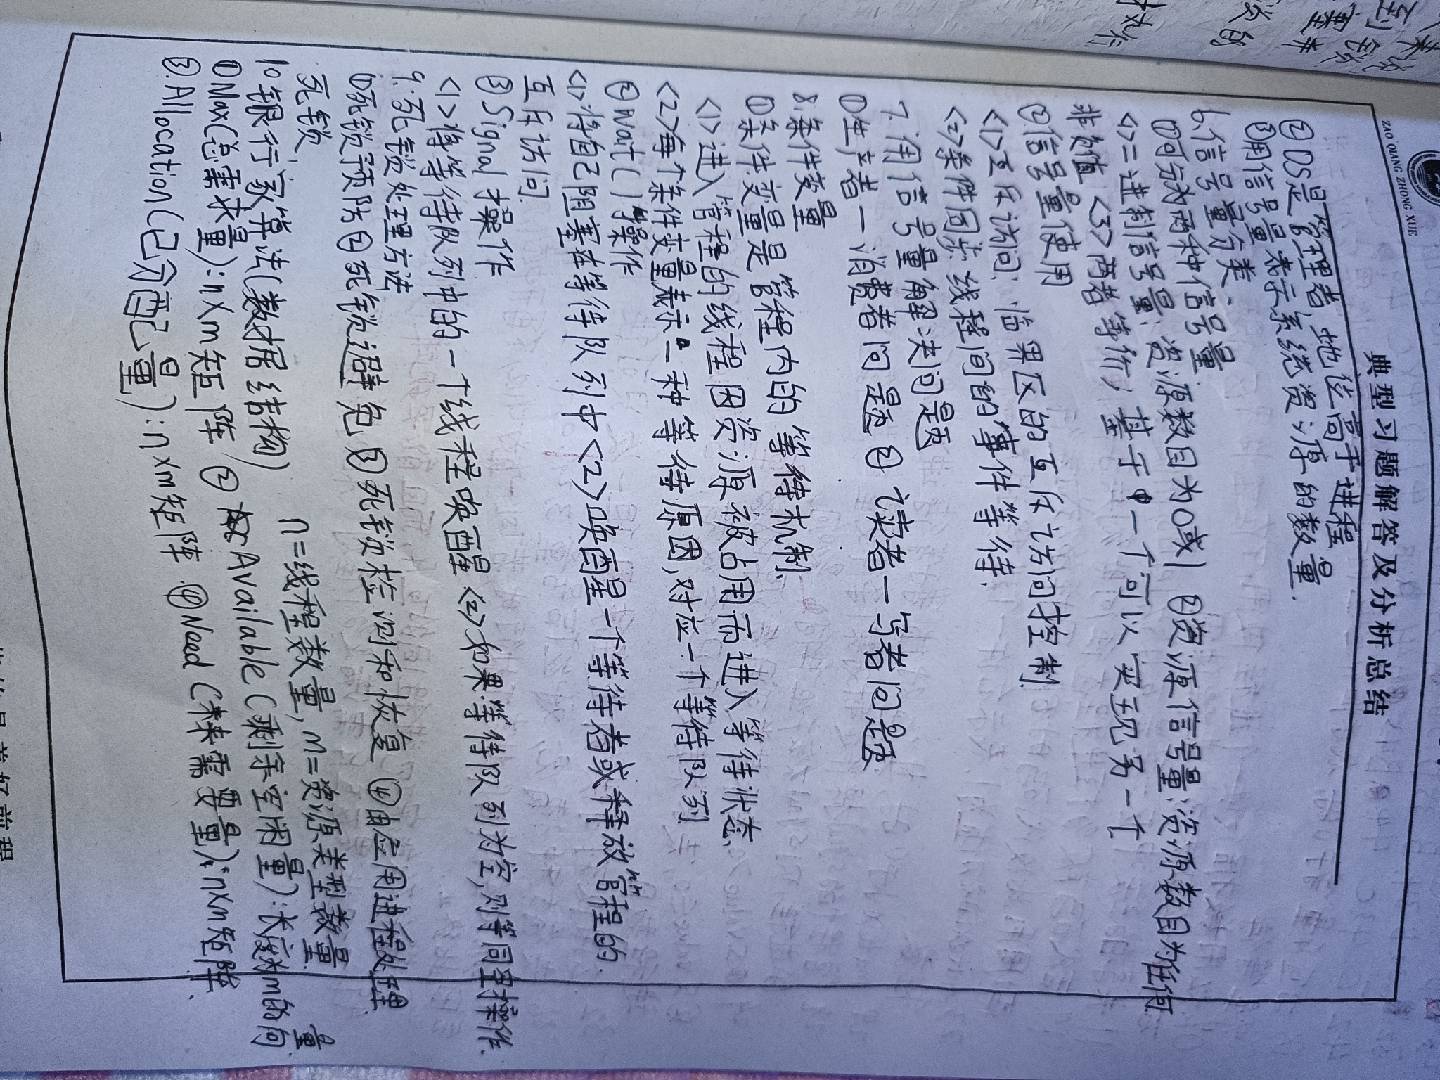 ZAO QIANG ZHONG XUE
典型习题解答及分析总结
②OS是管理者,地位高于进程
③用信号量表示系统资源的数量.
6.信号量分类.
①可分为两种信号量.
<1>二进制信号量:资源数目为0或1 ②资源信号量:资源数目为任何
非负值 <3>两者等价;基于一个可以实现另一个
②信号量使用
<1>互斥访问:临界区的互斥访问控制.
<2>条件同步:线程间的事件等待.
7.用信号量解决问题
①生产者一消费者问题②读者一写者问题
8.条件变量
①条件变量是管程内的等待机制.
<1>进入管程的线程因资源被占用而进入等待状态.
<2>每个条件变量表示一种等待原因,对应一个等待队列
②wait()操作
<1>将自己阻塞在等待队列中<2>唤醒一个等待者或释放管程的.
互斥访问.
③Signal操作
<1>将等待队列中的一个线程唤醒<2>如果等待队列为空,则等同空操作.
9.死锁处理方法
①死锁预防②死锁避免③死锁检测和恢复 ④由应用进程处理
死锁.
n=线程数量,m=资源类型数量.
10.银行家算法(数据结构)
①Max(总需求量):n×m矩阵 ②Available(剩余空闲量):长度为m的向量
③.Allocation(已分配量):n×m矩阵.④Need(未来需要量):n×m矩阵.
到锁
塞并
执行
美好前程